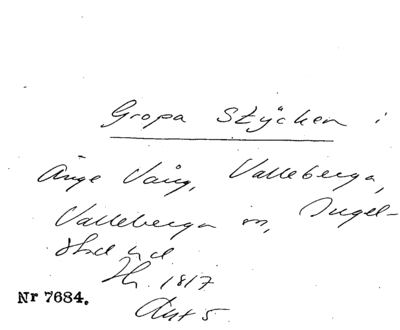 Gropa Stycken i
Änge Vång, Valleberga,
Valleberga sn, Ingel-
stad hd
Nr 7684.